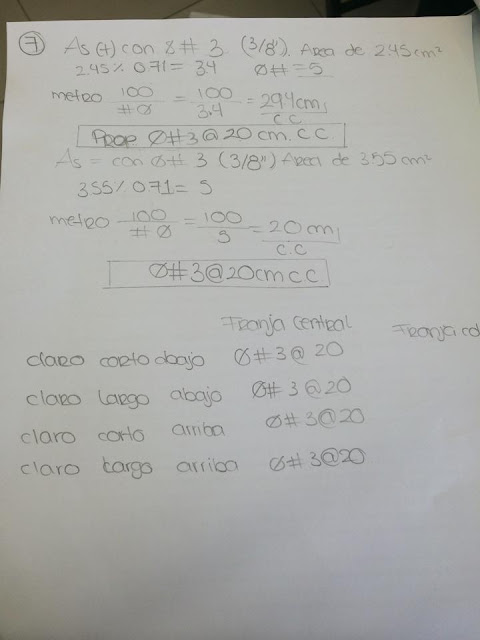 7 As(+) con 8# 3 (3/8"). Area de 245 cm²
2.45 % 0.71 = 3.4 Ø# = 5
metro 100/#Ø = 100/3.4 = 29.4 cm/c.c.
Prop Ø#3 @ 20 cm. c.c
As = con Ø# 3 (3/8") Area de 355 cm²
355 % 071 = 5
metro 100/#Ø = 100/5 = 20 cm/c.c
Ø#3@20cm c c
Franja central Franja co
claro corto abajo Ø# 3@ 20
claro largo abajo Ø# 3 @20
claro corto arriba Ø# 3@20
claro largo arriba Ø# 3@20